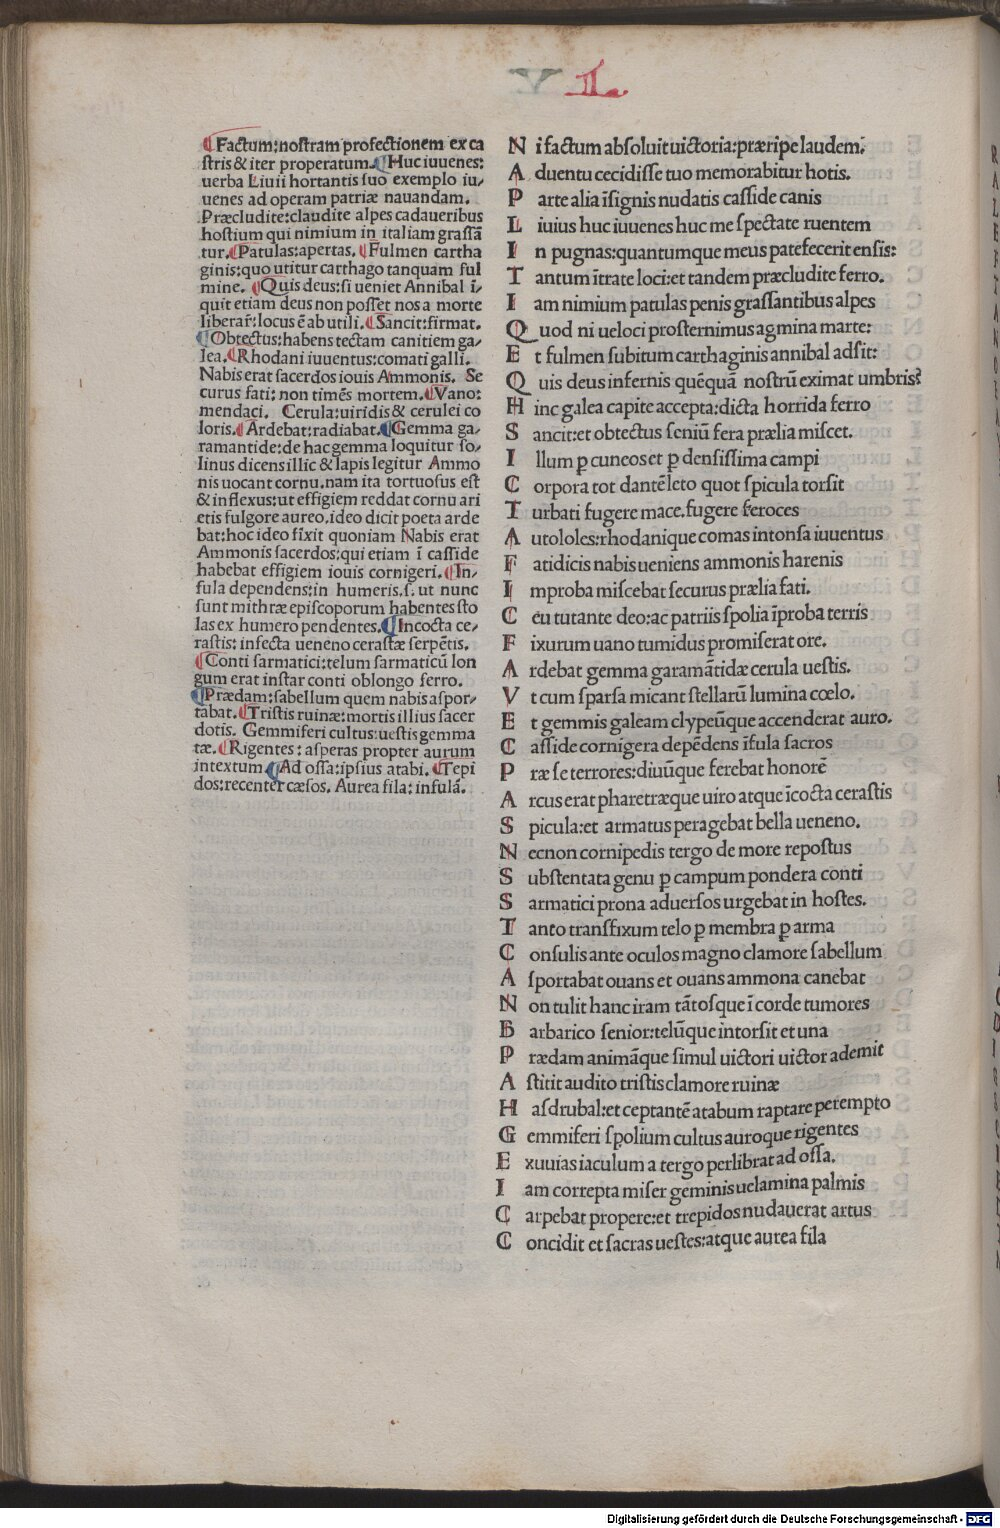 V L
¶Factum:nostram profectionem ex ca
stris & iter properatum.¶Huc iuuenes:
uerba Liuii hortantis suo exemplo iu-
uenes ad operam patriæ nauandam.
Præcludite:claudite alpes cadaueribus
hostium qui nimium in italiam grassã
tur.¶Patulas:apertas.¶Fulmen cartha
ginis:quo utitur carthago tanquam ful
mine. ¶Quis deus:si ueniet Annibal ĩ-
quit etiam deus non posset nos a morte
liberar̃:locus ẽ ab utili.¶Sancit:firmat.
¶Obtectus:habens tectam canitiem ga-
lea.¶Rhodani iuuentus:comati galli.
Nabis erat sacerdos iouis Ammonis. Se
curus fati: non timẽs mortem.¶Vano:
mendaci. Cerula:uiridis & cerulei co
loris.¶Ardebat:radiabat.¶Gemma ga-
ramantide:de hac gemma loquitur so-
linus dicens illic & lapis legitur Ammo
nis uocant cornu.nam ita tortuosus est
& inflexus:ut effigiem reddat cornu ari
etis fulgore aureo.ideo dicit poeta arde
bat:hoc ideo fixit quoniam Nabis erat
Ammonis sacerdos:qui etiam ĩ casside
habebat effigiem iouis cornigeri.¶In-
fula dependens:in humeris.s. ut nunc
sunt mithræ episcoporum habentes sto
las ex humero pendentes.¶Incocta ce-
rastis: infecta ueneno cerastæ serpẽtis.
¶Conti sarmatici:telum sarmaticũ lon
gum erat instar conti oblongo ferro.
¶Prædam:sabellum quem nabis aspor-
tabat.¶Tristis ruinæ:mortis illius sacer
dotis. Gemmiferi cultus:uestis gemma
tæ.¶Rigentes: asperas propter aurum
intextum.¶Ad ossa:ipsius atabi.¶Tepi
dos:recenter cæsos. Aurea fila: infulã.
N i factum absoluit uictoria:præripe laudem.
A duentu cecidisse tuo memorabitur hotis.
P arte alia ĩsignis nudatis casside canis
L iuius huc iuuenes huc me spectate ruentem
I n pugnas:quantumque meus patefecerit ensis:
T antum ĩtrate loci:et tandem præcludite ferro.
I am nimium patulas penis grassantibus alpes
Q uod ni ueloci prosternimus agmina marte:
E t fulmen subitum carthaginis annibal adsit:
Q uis deus infernis quẽquã nostrũ eximat umbris?
H inc galea capite accepta:dicta horrida ferro
S ancit:et obtectus seniũ fera prælia miscet.
I llum ꝑ cuneos et ꝑ densissima campi
C orpora tot dantẽ leto quot spicula torsit
T urbati fugere mace.fugere feroces
A utololes:rhodanique comas intonsa iuuentus
F atidicis nabis ueniens ammonis harenis
I mproba miscebat securus prælia fati.
C eu tutante deo:ac patriis spolia ĩproba terris
F ixurum uano tumidus promiserat ore.
A rdebat gemma garamãtidæ cerula uestis.
V t cum sparsa micant stellarũ lumina cœlo.
E t gemmis galeam clypeũque accenderat auro.
C asside cornigera depẽdens ĩfula sacros
P ræ se terrores:diuũque ferebat honorẽ
A rcus erat pharetræque uiro atque ĩcocta cerastis
S picula:et armatus peragebat bella ueneno.
N ecnon cornipedis tergo de more repostus
S ubstentata genu ꝑ campum pondera conti
S armatici prona aduersos urgebat in hostes.
T anto transfixum telo ꝑ membra ꝑ arma
C onsulis ante oculos magno clamore sabellum
A sportabat ouans et ouans ammona canebat
N on tulit hanc iram tãtosque ĩ corde tumores
B arbarico senior:telũque intorsit et una
P rædam animãque simul uictori uictor ademit
A stitit audito tristis clamore ruinæ
H asdrubal:et ceptantẽ atabum raptare perempto
G emmiferi spolium cultus auroque rigentes
E xuuias iaculum a tergo perlibrat ad ossa.
I am correpta miser geminis uelamina palmis
C arpebat propere:et trepidos nudauerat artus
C oncidit et sacras uestes:atque aurea fila
Digitalisierung gefördert durch die Deutsche Forschungsgemeinschaft - DFG